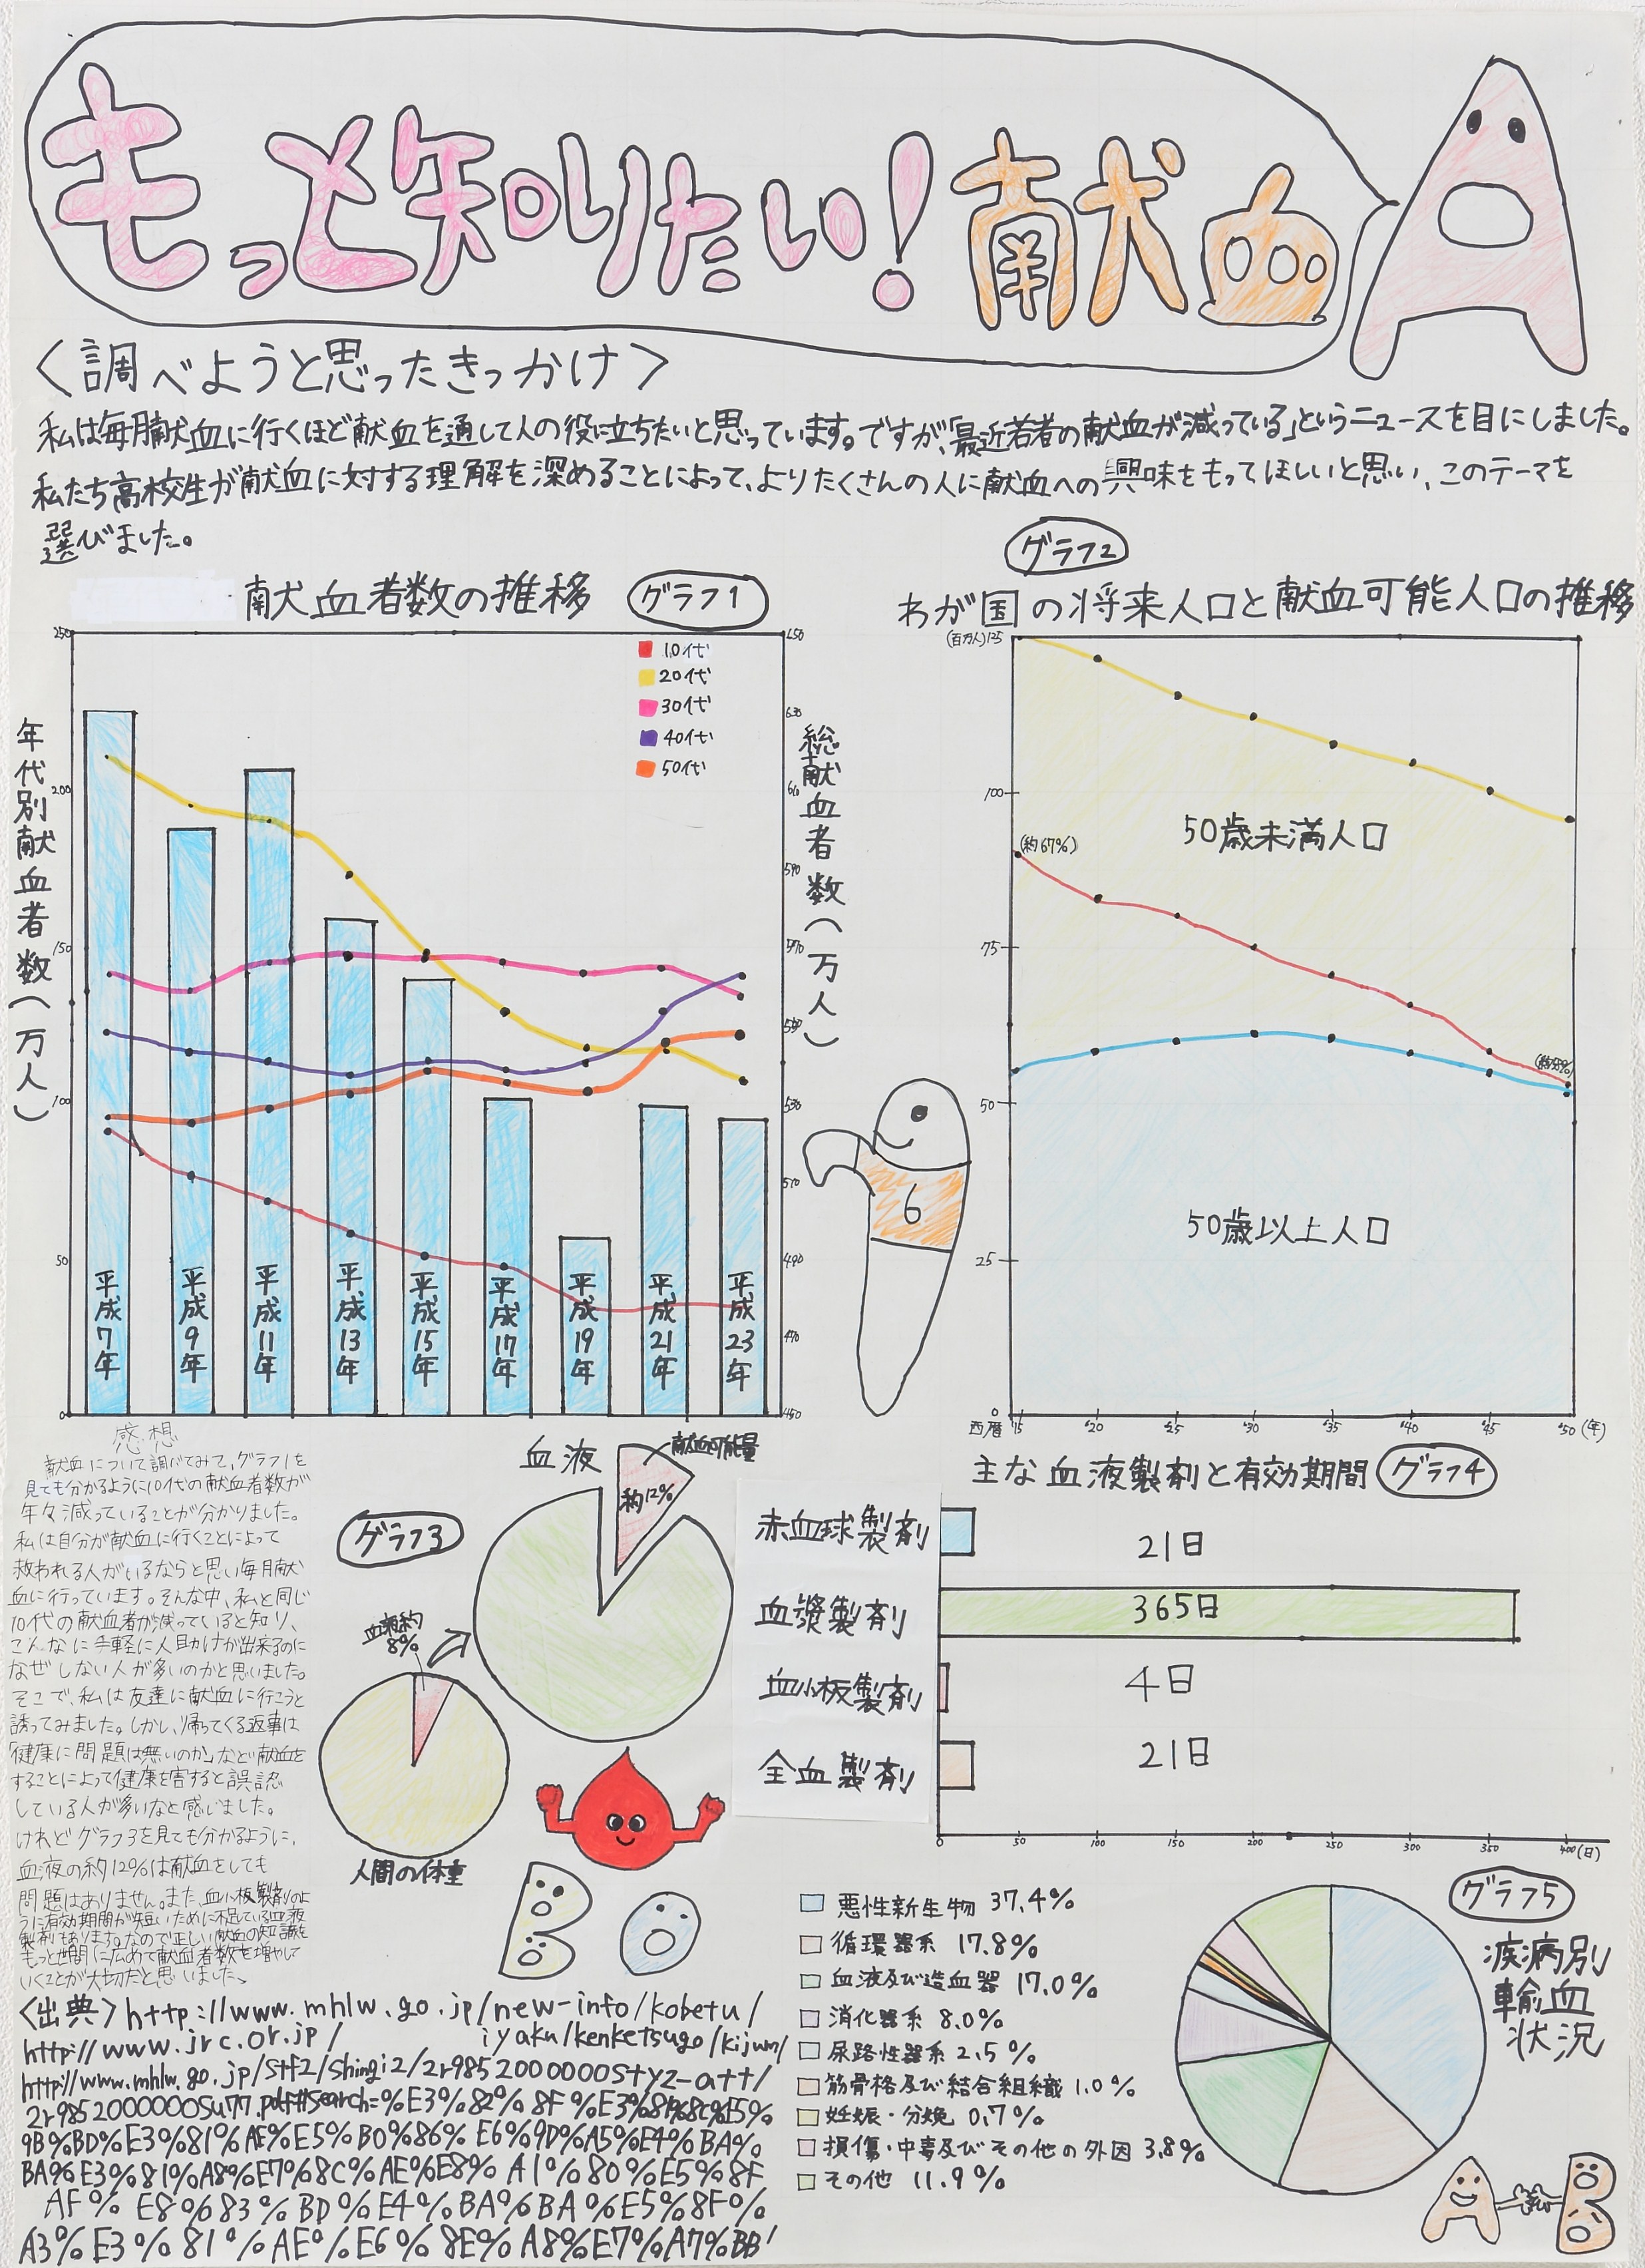 もっと知りたい!献血
<調べようと思ったきっかけ>
私は毎月献血に行くほど献血を通して人の役に立ちたいと思っています。ですが、「最近若者の献血が減っている」というニュースを目にしました。
私たち高校生が献血に対する理解を深めることによって、よりたくさんの人に献血への興味をもってほしいと思い、このテーマを
選びました。
献血者数の推移 グラフ1
年代別献血者数(万人)
総献血者数(万人)
250
200
150
100
50
0
650
630
610
590
570
550
530
510
490
470
450
10代
20代
30代
40代
50代
平成7年
平成9年
平成11年
平成13年
平成15年
平成17年
平成19年
平成21年
平成23年
6
グラフ2
わが国の将来人口と献血可能人口の推移
(百万人)125
100
75
50
25
0
(約67%)
50歳未満人口
50歳以上人口
西暦 '15 '20 '25 '30 '35 '40 '45 '50 (年)
感想
献血について調べてみて、グラフ1を
見ても分かるように10代の献血者数が
年々減っていることが分かりました。
私は自分が献血に行くことによって
救われる人がいるならと思い毎月献
血に行っています。そんな中、私と同じ
10代の献血者が減っていると知り、
こんなに手軽に人助けが出来るのに
なぜしない人が多いのかと思いました。
そこで、私は友達に献血に行こうと
誘ってみました。しかし、帰ってくる返事は
「健康に問題は無いのか」など献血を
することによって健康を害すると誤認
している人が多いなと感じました。
けれどグラフ3を見ても分かるように、
血液の約12%は献血をしても
問題はありません。また、血小板製剤のよ
うに有効期間が短いために不足している血液
製剤もあります。なので正しい献血の知識を
もっと世間に広めて献血者数を増やして
いくことが大切だと思いました。
グラフ3
血液
献血可能量
約12%
血液約
8%
人間の体重
B
O
主な血液製剤と有効期間 グラフ4
赤血球製剤 21日
血漿製剤 365日
血小板製剤 4日
全血製剤 21日
0 50 100 150 200 250 300 350 400(日)
グラフ5
疾病別
輸血
状況
悪性新生物 37.4%
循環器系 17.8%
血液及び造血器 17.0%
消化器系 8.0%
尿路性器系 2.5%
筋骨格及び結合組織 1.0%
妊娠・分娩 0.7%
損傷・中毒及びその他の外因 3.8%
その他 11.9%
A
B
<出典>http://www.mhlw.go.jp/new-info/kobetu/
iyaku/kenketsugo/kijun/
http://www.jrc.or.jp/
http://www.mhlw.go.jp/stf2/shingi2/2r9852000000styz-att/
2r9852000000su77.pdf#search=%E3%82%8F%E3%81%8C%E5%
9B%BD%E3%81%AE%E5%B0%86%E6%9D%A5%E4%BA%
BA%E3%81%A8%E7%8C%AE%E8%A1%80%E5%8F
AF%E8%83%BD%E4%BA%BA%E5%8F%
A3%E3%81%AE%E6%8E%A8%E7%A7%BB'